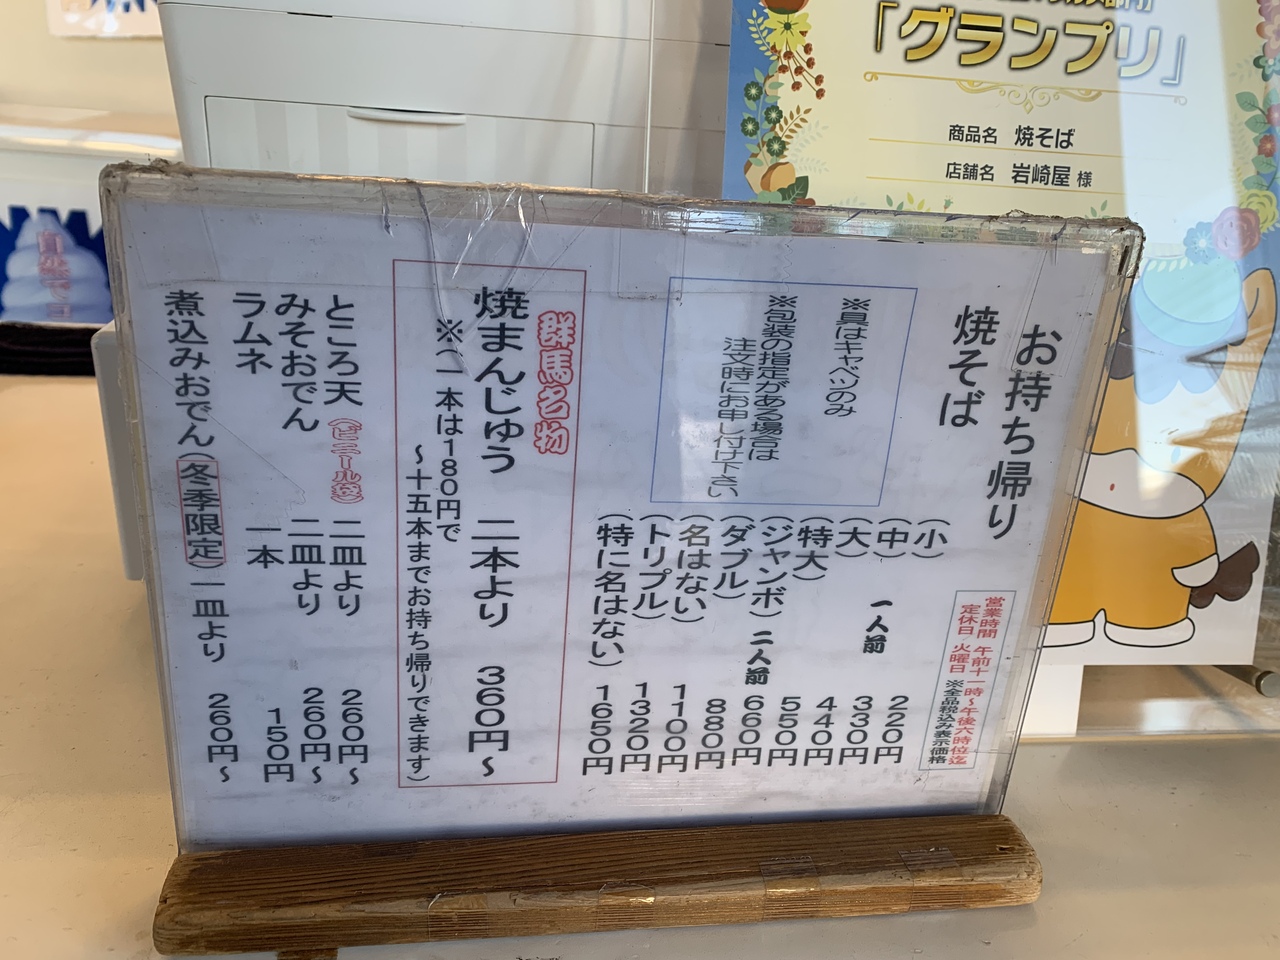 「グランプリ」
商品名 焼そば
店舗名 岩崎屋 様
お持ち帰り
焼そば
営業時間 午前十一時～午後六時位迄
定休日 火曜日 ※全品税込み表示価格
※具はキャベツのみ
※包装の指定がある場合は
注文時にお申し付け下さい
(小) 220円
(中) 一人前 330円
(大) 440円
(特大) 550円
(ジャンボ) 二人前 660円
(ダブル) 880円
(名はない) 1100円
(トリプル) 1320円
(特に名はない) 1650円
群馬名物
焼まんじゅう 二本より 360円～
※(一本は180円で
～十五本までお持ち帰りできます)
ところ天(ビニール袋) 二皿より 260円～
みそおでん 二皿より 260円～
ラムネ 一本 150円
煮込みおでん(冬季限定) 一皿より 260円～